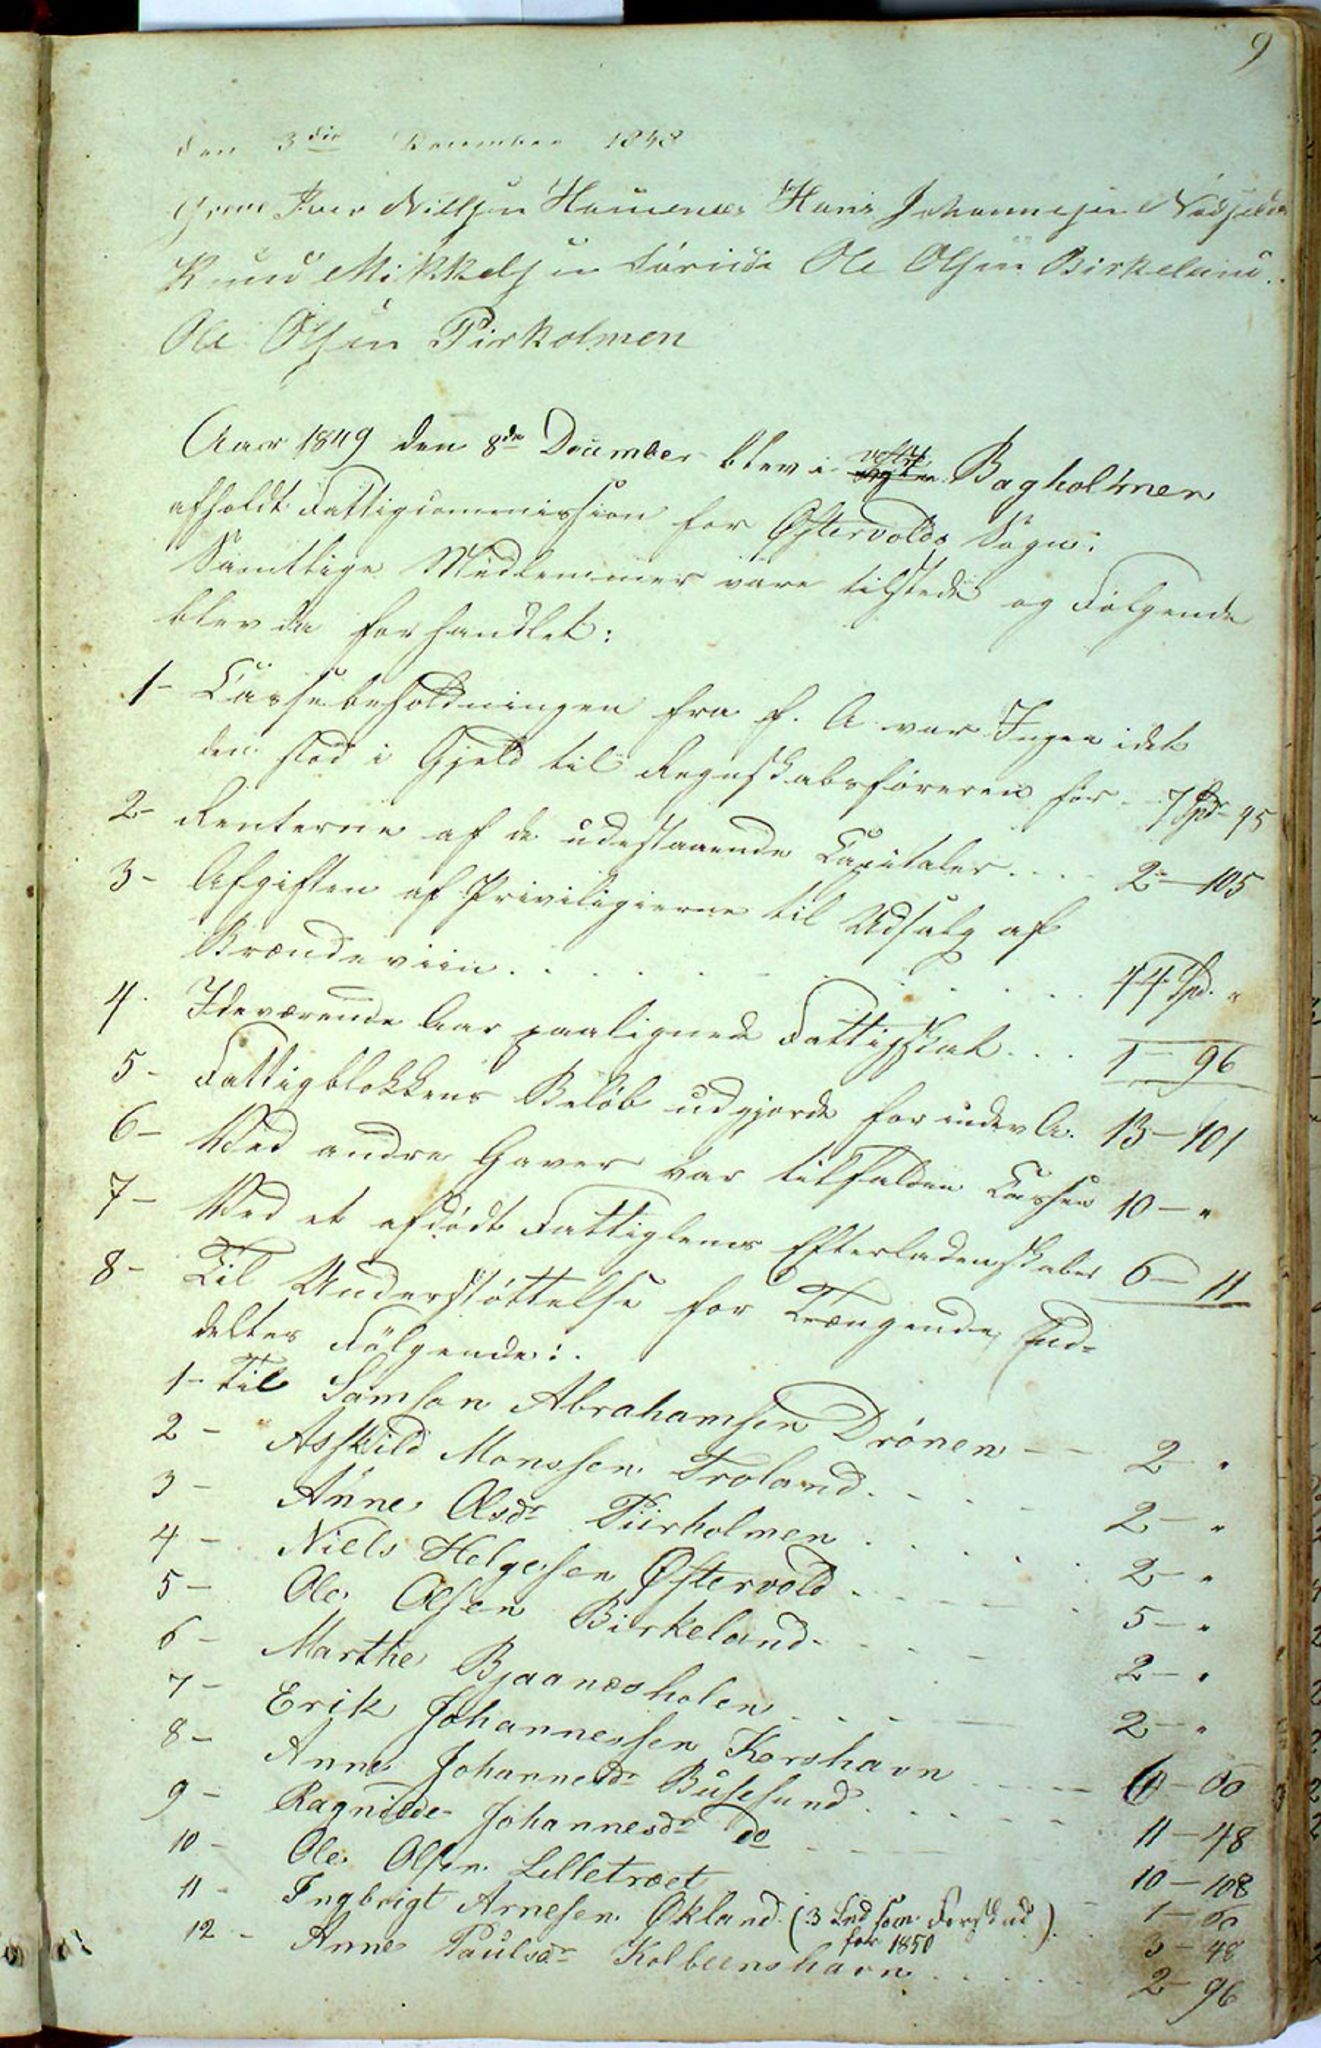 9
den 3die December 1848
Iver Nillsen Hans Johannesen
Knud Mikkelsen Ole Olsen Birkeland
Ole Olsen Pirholmen
Aar 1849 den 8de December blev i vestre Bagholmen
afholdt Fattigcommission for Østervolds Sogn.
Samtlige Medlemmer vare tilstede og Følgende
blev da forhandlet:
1- Cassebeholdningen fra f. A. var Ingen idet
den stod i Gjeld til Regnskabsføreren for - 7 Spd - 95
2- Renterne af de udestaaende Capitaler .... 2 - 105
3- Afgiften af Priviligierne til Udsalg af
Brændeviin ........ 44 Spd. "
4. Ideværende Aar paalignede Fattigskat ... 1 - 96
5- Fattigblokkens Beløb udgjorde for indev. A. 13 - 101
6- Ved andre Gaver var tilfalden Cassen 10 - "
7- Ved et afdødt Fattiglems Efterladenskaber 6 - 11
8- Til Understøttelse for Trængende, Ud-
deltes Følgende:
1- Til Samson Abrahamsen Drönen - - 2 "
2 - Asskild Monssen Troland . - - - 2 - "
3 - Anne Olsdr Piirholmen . . . . . 2 - "
4 - Niels Helgesen Østervold - - - - 5 - "
5 - Ole Olsen Birkeland - - - 2 - "
6 - Marthe Bjaanæsholen - - - 2 - "
7 - Erik Johannessen Korshavn - - -
8 - Anne Johannesdr Busesund . . . . 11 - 48
9 - Ragnilde Johannesdr do - - - 10 - 108
10 - Ole Olsen Lilletræet
11 - Ingbrigt Arnesen Økland (3 Spd som Forskud) . 3 - 48
for 1850
12 - Anne Paulsdr Kolbeenshavn . . . . 2 - 96